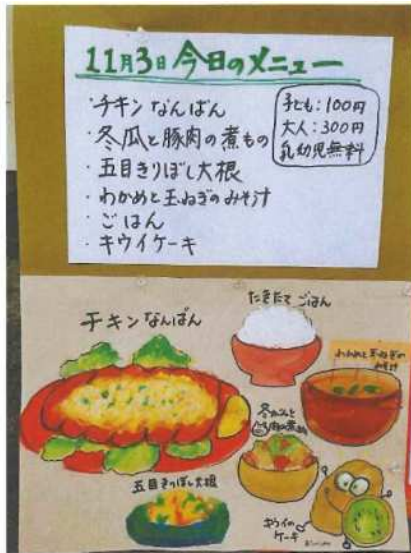 11月3日 今日のメニュー
・チキンなんばん
・冬瓜と豚肉の煮もの
・五目きりぼし大根
・わかめと玉ねぎのみそ汁
・ごはん
・キウイケーキ
子ども：100円
大人：300円
乳幼児無料
たきたて ごはん
チキンなんばん
わかめと玉ねぎの
みそ汁
冬がんと
五目きりぼし大根
キウイの
ケーキ